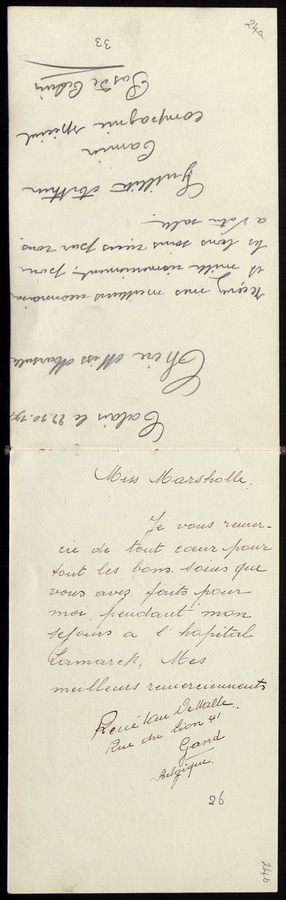 Calais le 22.10.19
Chère Miss Marshall
Reçevez mes meilleurs
et mille remerciements pour
les bons soins reçus par vous
a votre salle.
Arthur
Camion
compagnie
Pas de Calais
33
24a
Miss Marsholle.
Je vous remer-
cie de tout cœur pour
tout les bons soins que
vous avez faits pour
moi pendant mon
sejour a l'hopital
Lamarck, Mes
meilleurs remerciements
René Van DeWalle.
Rue du Lion 41
Gand
Belgique.
26
24b